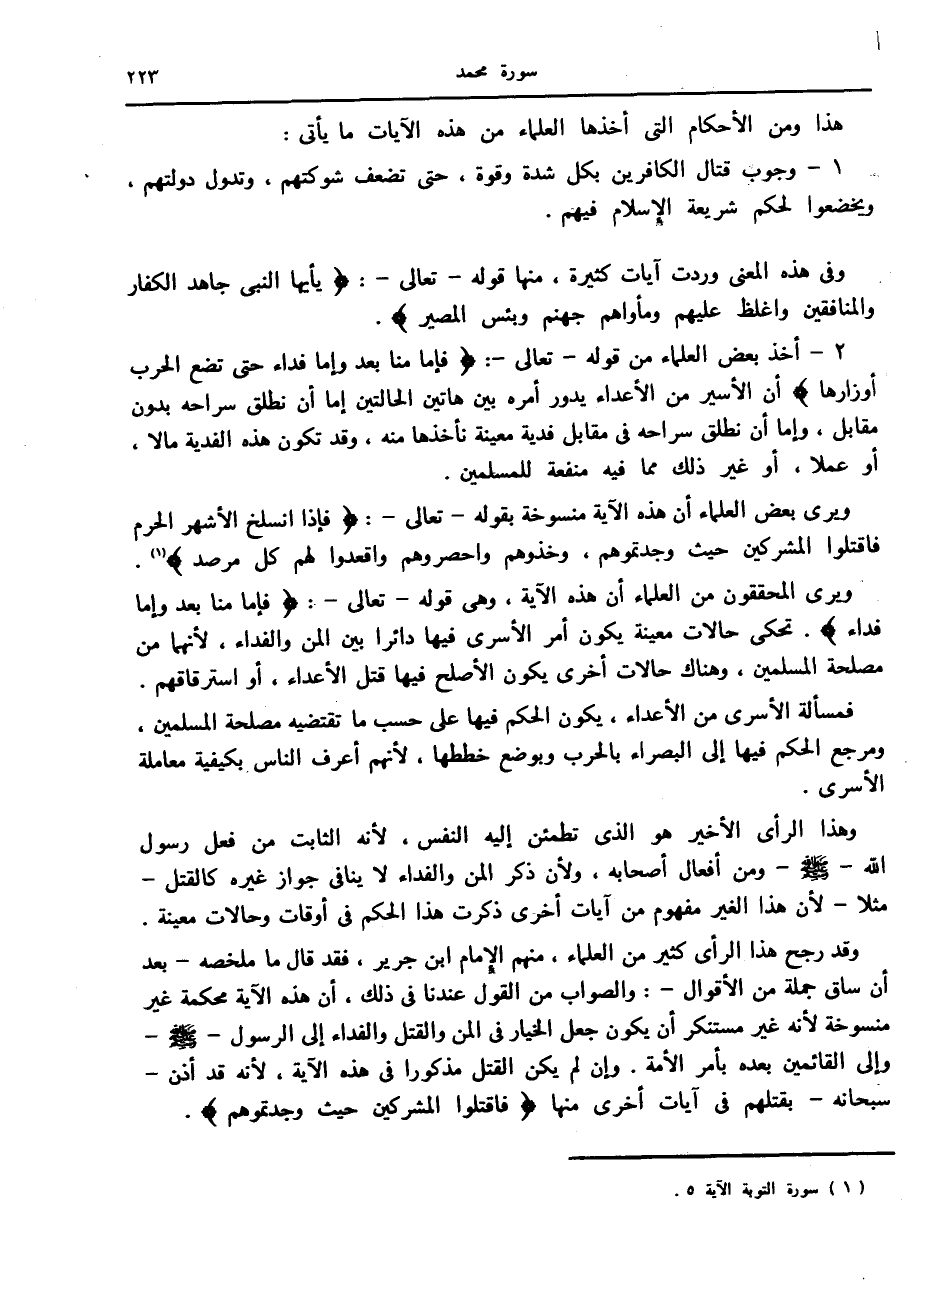 سورة محمد ٢٢٣
هذا ومن الأحكام التى أخذها العلماء من هذه الآيات ما يأتى :
١ – وجوب قتال الكافرين بكل شدة وقوة ، حتى تضعف شوكتهم ، وتدول دولتهم ،
ويخضعوا لحكم شريعة الإسلام فيهم .
وفى هذه المعنى وردت آيات كثيرة ، منها قوله – تعالى – : ﴿ يأيها النبى جاهد الكفار
والمنافقين واغلظ عليهم ومأواهم جهنم وبئس المصير ﴾ .
٢ – أخذ بعض العلماء من قوله – تعالى –: ﴿ فإما منا بعد وإما فداء حتى تضع الحرب
أوزارها ﴾ أن الأسير من الأعداء يدور أمره بين هاتين الحالتين إما أن نطلق سراحه بدون
مقابل ، وإما أن نطلق سراحه فى مقابل فدية معينة نأخذها منه ، وقد تكون هذه الفدية مالا ،
أو عملا ، أو غير ذلك مما فيه منفعة للمسلمين .
ويرى بعض العلماء أن هذه الآية منسوخة بقوله – تعالى – : ﴿ فإذا انسلخ الأشهر الحرم
فاقتلوا المشركين حيث وجدتموهم ، وخذوهم واحصروهم واقعدوا لهم كل مرصد ﴾(١) .
ويرى المحققون من العلماء أن هذه الآية ، وهى قوله – تعالى – : ﴿ فإما منا بعد وإما
فداء ﴾ . تحكى حالات معينة يكون أمر الأسرى فيها دائرا بين المن والفداء ، لأنهما من
مصلحة المسلمين ، وهناك حالات أخرى يكون الأصلح فيها قتل الأعداء ، أو استرقاقهم .
فمسألة الأسرى من الأعداء ، يكون الحكم فيها على حسب ما تقتضيه مصلحة المسلمين ،
ومرجع الحكم فيها إلى البصراء بالحرب وبوضع خططها ، لأنهم أعرف الناس بكيفية معاملة
الأسرى .
وهذا الرأى الأخير هو الذى تطمئن إليه النفس ، لأنه الثابت من فعل رسول
الله – ﷺ – ومن أفعال أصحابه ، ولأن ذكر المن والفداء لا ينافى جواز غيره كالقتل –
مثلا – لأن هذا الغير مفهوم من آيات أخرى ذكرت هذا الحكم فى أوقات وحالات معينة .
وقد رجح هذا الرأى كثير من العلماء ، منهم الإمام ابن جرير ، فقد قال ما ملخصه – بعد
أن ساق جملة من الأقوال – : والصواب من القول عندنا فى ذلك ، أن هذه الآية محكمة غير
منسوخة لأنه غير مستنكر أن يكون جعل الخيار فى المن والقتل والفداء إلى الرسول – ﷺ –
وإلى القائمين بعده بأمر الأمة . وإن لم يكن القتل مذكورا فى هذه الآية ، لأنه قد أذن –
سبحانه – بقتلهم فى آيات أخرى منها ﴿ فاقتلوا المشركين حيث وجدتموهم ﴾ .
(١) سورة التوبة الآية ٥ .